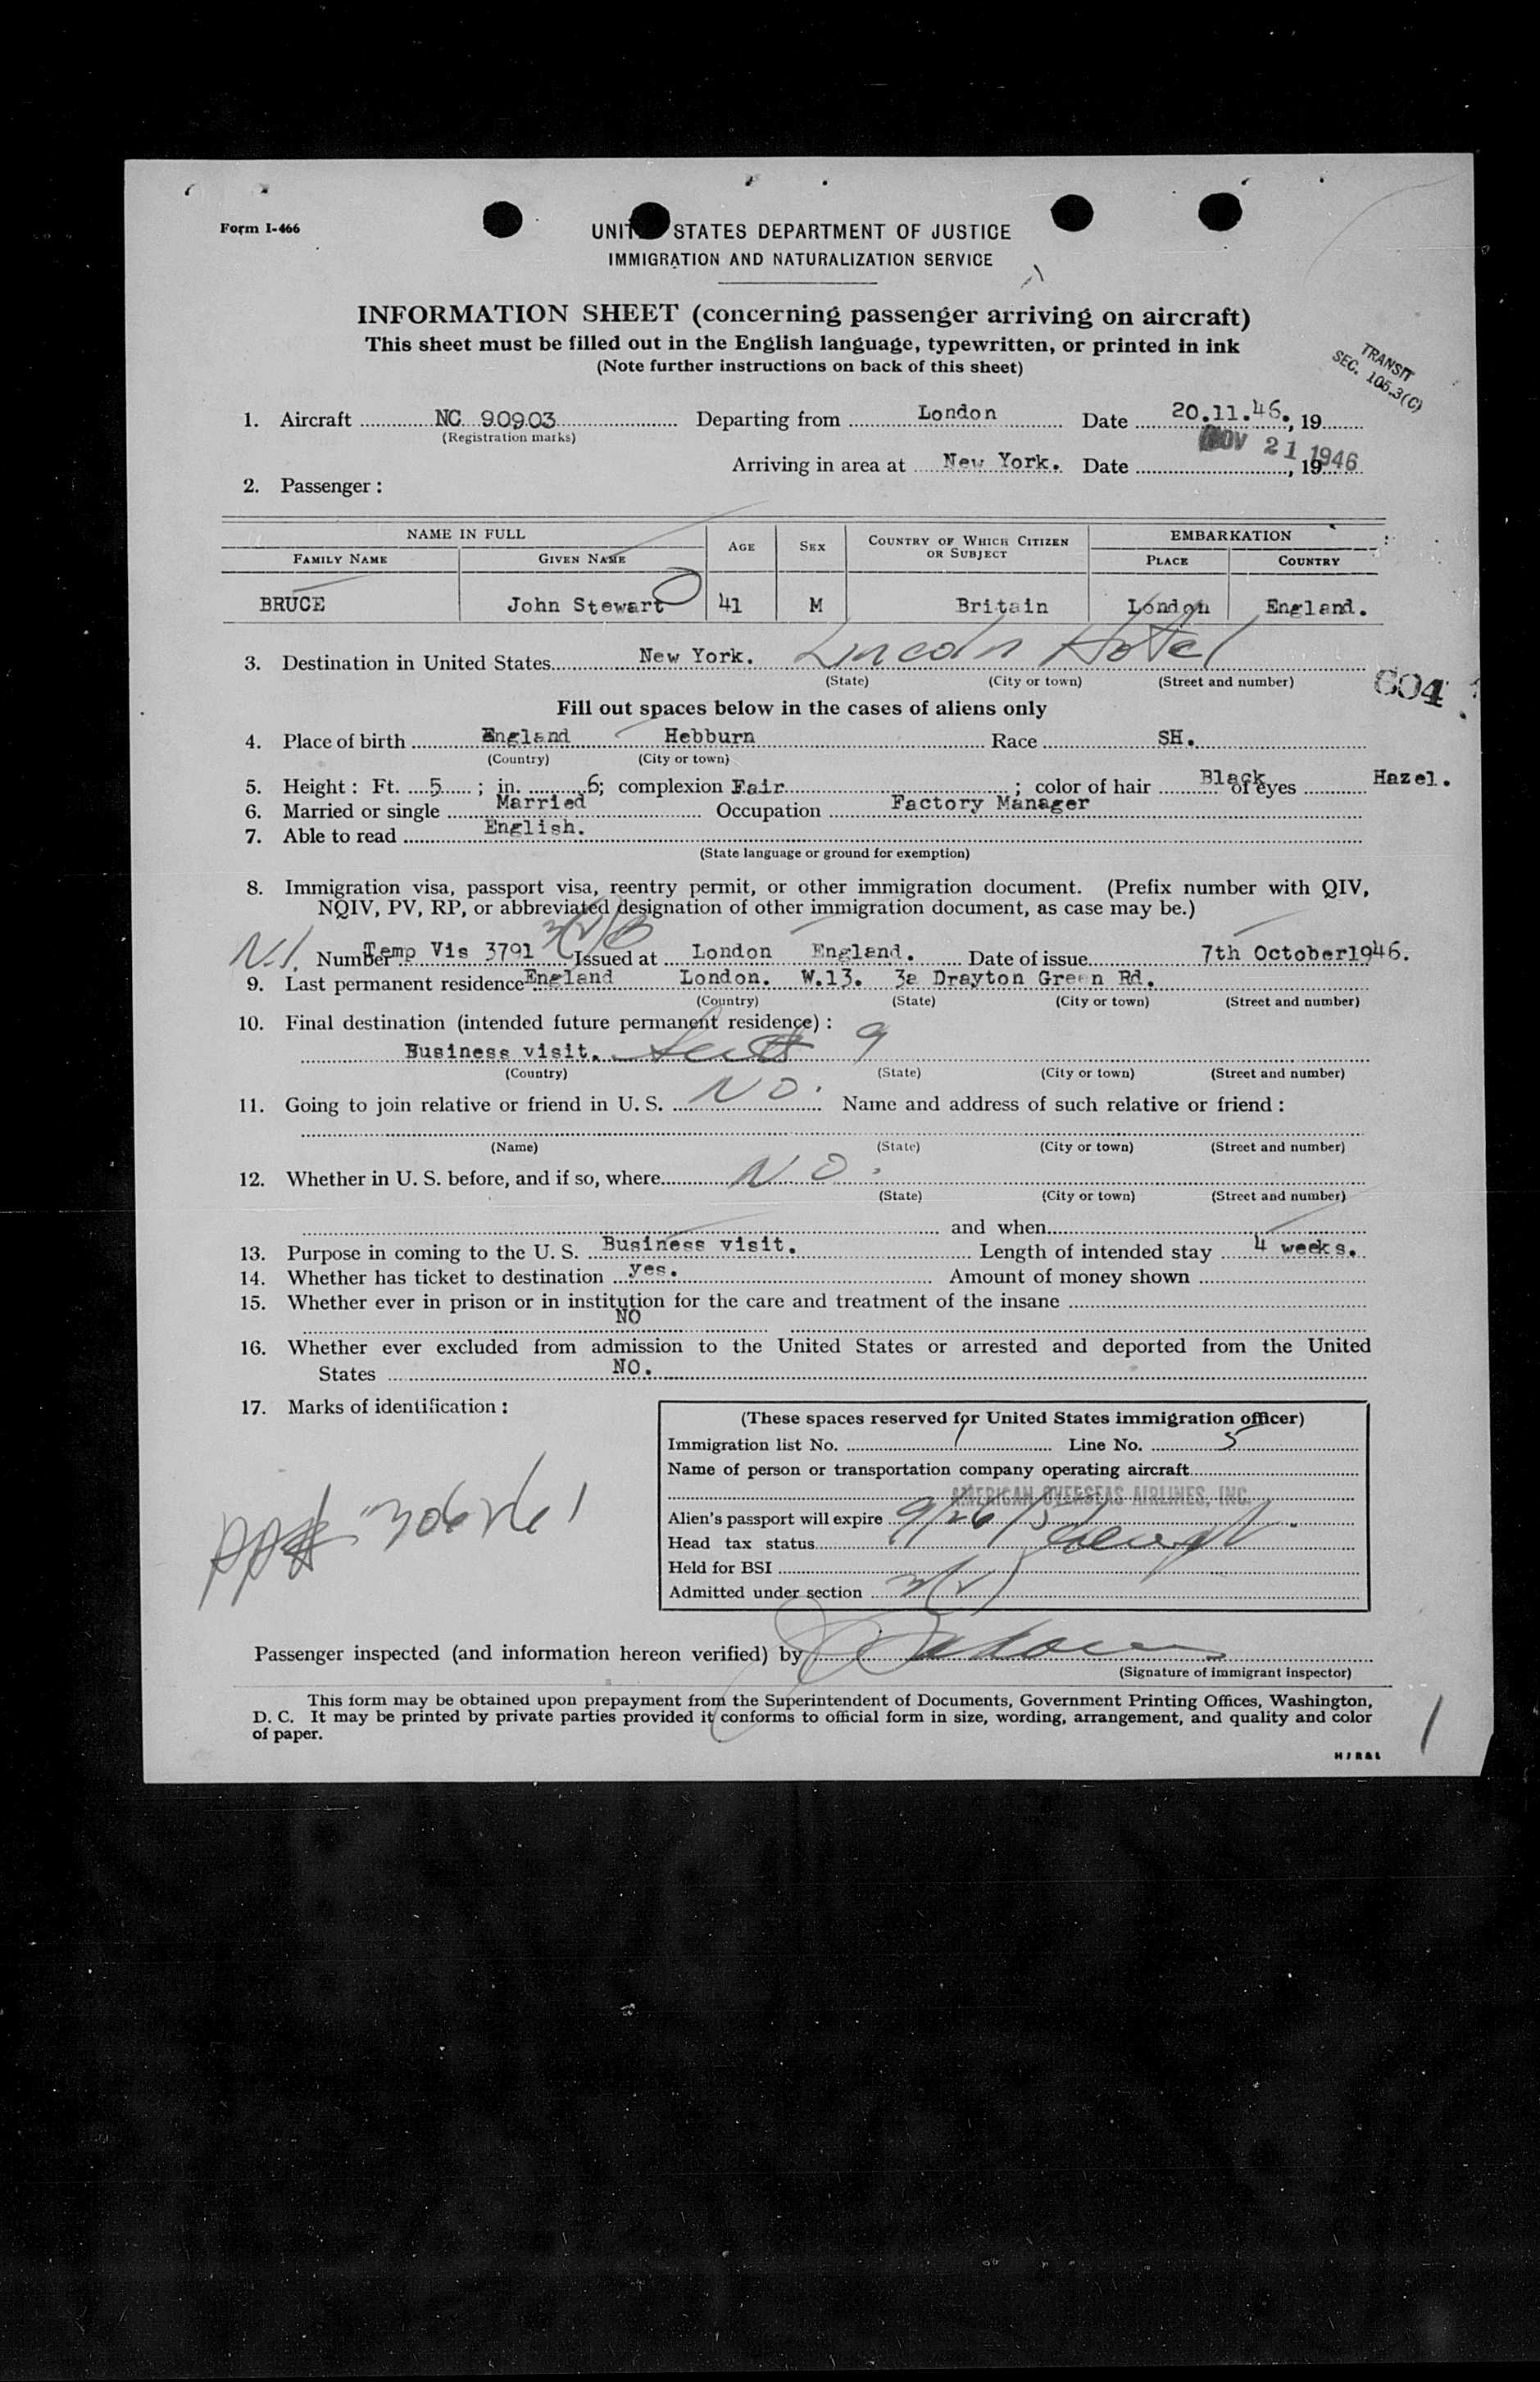 Form I-466
UNIT STATES DEPARTMENT OF JUSTICE
IMMIGRATION AND NATURALIZATION SERVICE
INFORMATION SHEET (concerning passenger arriving on aircraft)
This sheet must be filled out in the English language, typewritten, or printed in ink
(Note further instructions on back of this sheet)
TRANSIT
SEC. 105.3(C)
1. Aircraft NC 90903 Departing from London Date 20.11.46., 19
(Registration marks)
Arriving in area at New York. Date NOV 21 1946, 19
2. Passenger:
NAME IN FULL AGE SEX COUNTRY OF WHICH CITIZEN OR SUBJECT EMBARKATION
FAMILY NAME GIVEN NAME PLACE COUNTRY
BRUCE John Stewart 41 M Britain London England.
3. Destination in United States New York. Lincoln Hotel
(State) (City or town) (Street and number)
604
Fill out spaces below in the cases of aliens only
4. Place of birth England Hebburn Race SH.
(Country) (City or town)
5. Height: Ft. 5; in. 6; complexion Fair; color of hair Black of eyes Hazel.
6. Married or single Married Occupation Factory Manager
7. Able to read English.
(State language or ground for exemption)
8. Immigration visa, passport visa, reentry permit, or other immigration document. (Prefix number with QIV,
NQIV, PV, RP, or abbreviated designation of other immigration document, as case may be.)
3(2)B
N.I. Number Temp Vis 3791 Issued at London England. Date of issue 7th October1946.
9. Last permanent residence England London. W.13. 3a Drayton Green Rd.
(Country) (State) (City or town) (Street and number)
10. Final destination (intended future permanent residence):
Business visit. 9
(Country) (State) (City or town) (Street and number)
11. Going to join relative or friend in U. S. NO. Name and address of such relative or friend:
(Name) (State) (City or town) (Street and number)
12. Whether in U. S. before, and if so, where NO.
(State) (City or town) (Street and number)
and when
13. Purpose in coming to the U. S. Business visit. Length of intended stay 4 weeks.
14. Whether has ticket to destination yes. Amount of money shown
15. Whether ever in prison or in institution for the care and treatment of the insane
NO
16. Whether ever excluded from admission to the United States or arrested and deported from the United
States NO.
17. Marks of identification:
(These spaces reserved for United States immigration officer)
Immigration list No. 1 Line No. 5
Name of person or transportation company operating aircraft
AMERICAN OVERSEAS AIRLINES, INC.
Alien's passport will expire 9/26/51
Head tax status exempt
Held for BSI
Admitted under section 3(2)
Passenger inspected (and information hereon verified) by
(Signature of immigrant inspector)
This form may be obtained upon prepayment from the Superintendent of Documents, Government Printing Offices, Washington,
D. C. It may be printed by private parties provided it conforms to official form in size, wording, arrangement, and quality and color
of paper.
HJR&L
1